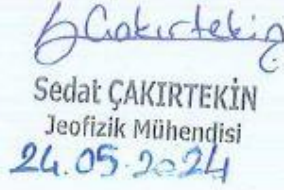 S.Çakırtekin
Sedat ÇAKIRTEKİN
Jeofizik Mühendisi
24.05.2024